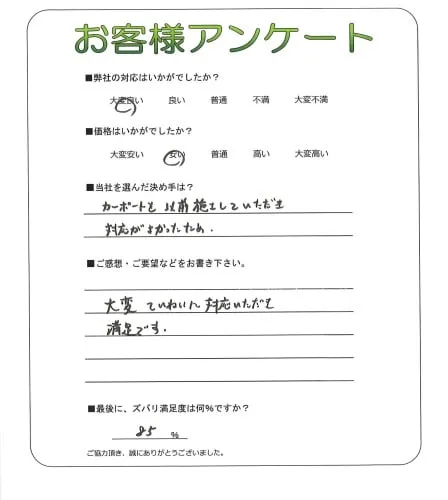 お客様アンケート
■弊社の対応はいかがでしたか？
大変良い 良い 普通 不満 大変不満
■価格はいかがでしたか？
大変安い 安い 普通 高い 大変高い
■当社を選んだ決め手は？
カーポートも以前施工していただき
対応がよかったため.
■ご感想・ご要望などをお書き下さい。
大変ていねいに対応いただき
満足です.
■最後に、ズバリ満足度は何%ですか？
85 %
ご協力頂き、誠にありがとうございました。